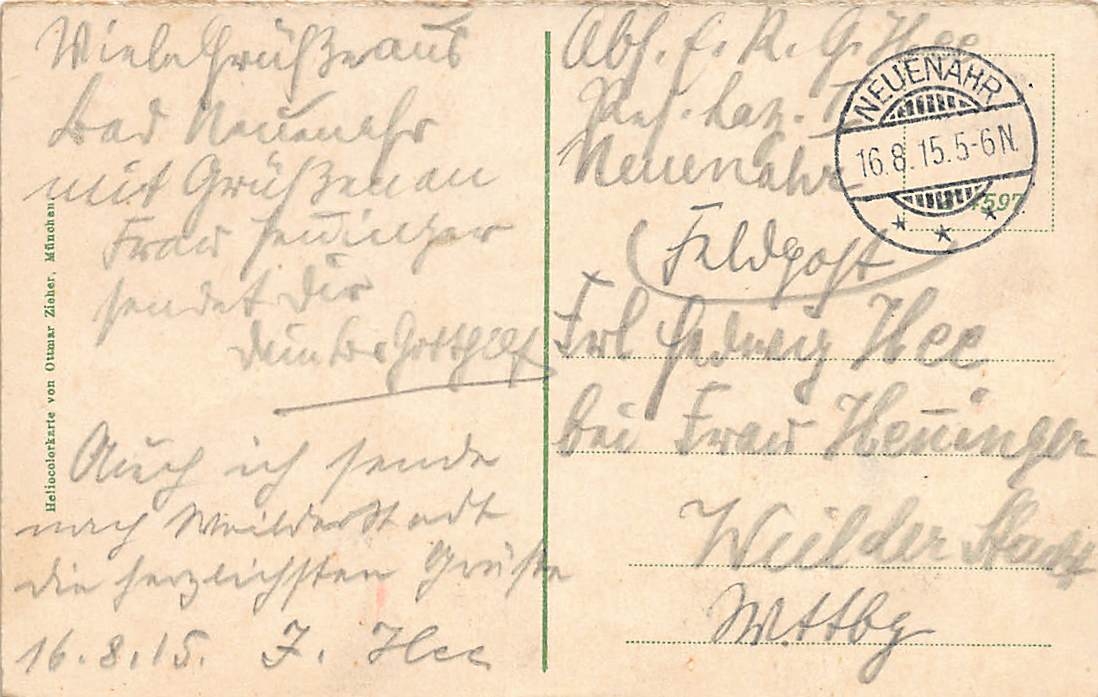 Viele Grüße aus
Bad Neuenahr
mit Grüßen an
Frau Heuinger
sendet Dir
Dein lb. Gotthilf
Auch ich sende
nach Weilderstadt
die herzlichsten Grüße
16.8.15. J. Hee
Heliocolorkarte von Ottmar Zieher, München.
Abs. G. Hee
Res. Laz. I
Neuenahr
Feldpost
Frl Hedwig Hee
bei Frau Heuinger
Weilder Stadt
Wttbg
NEUENAHR
16.8.15.5-6N.
597